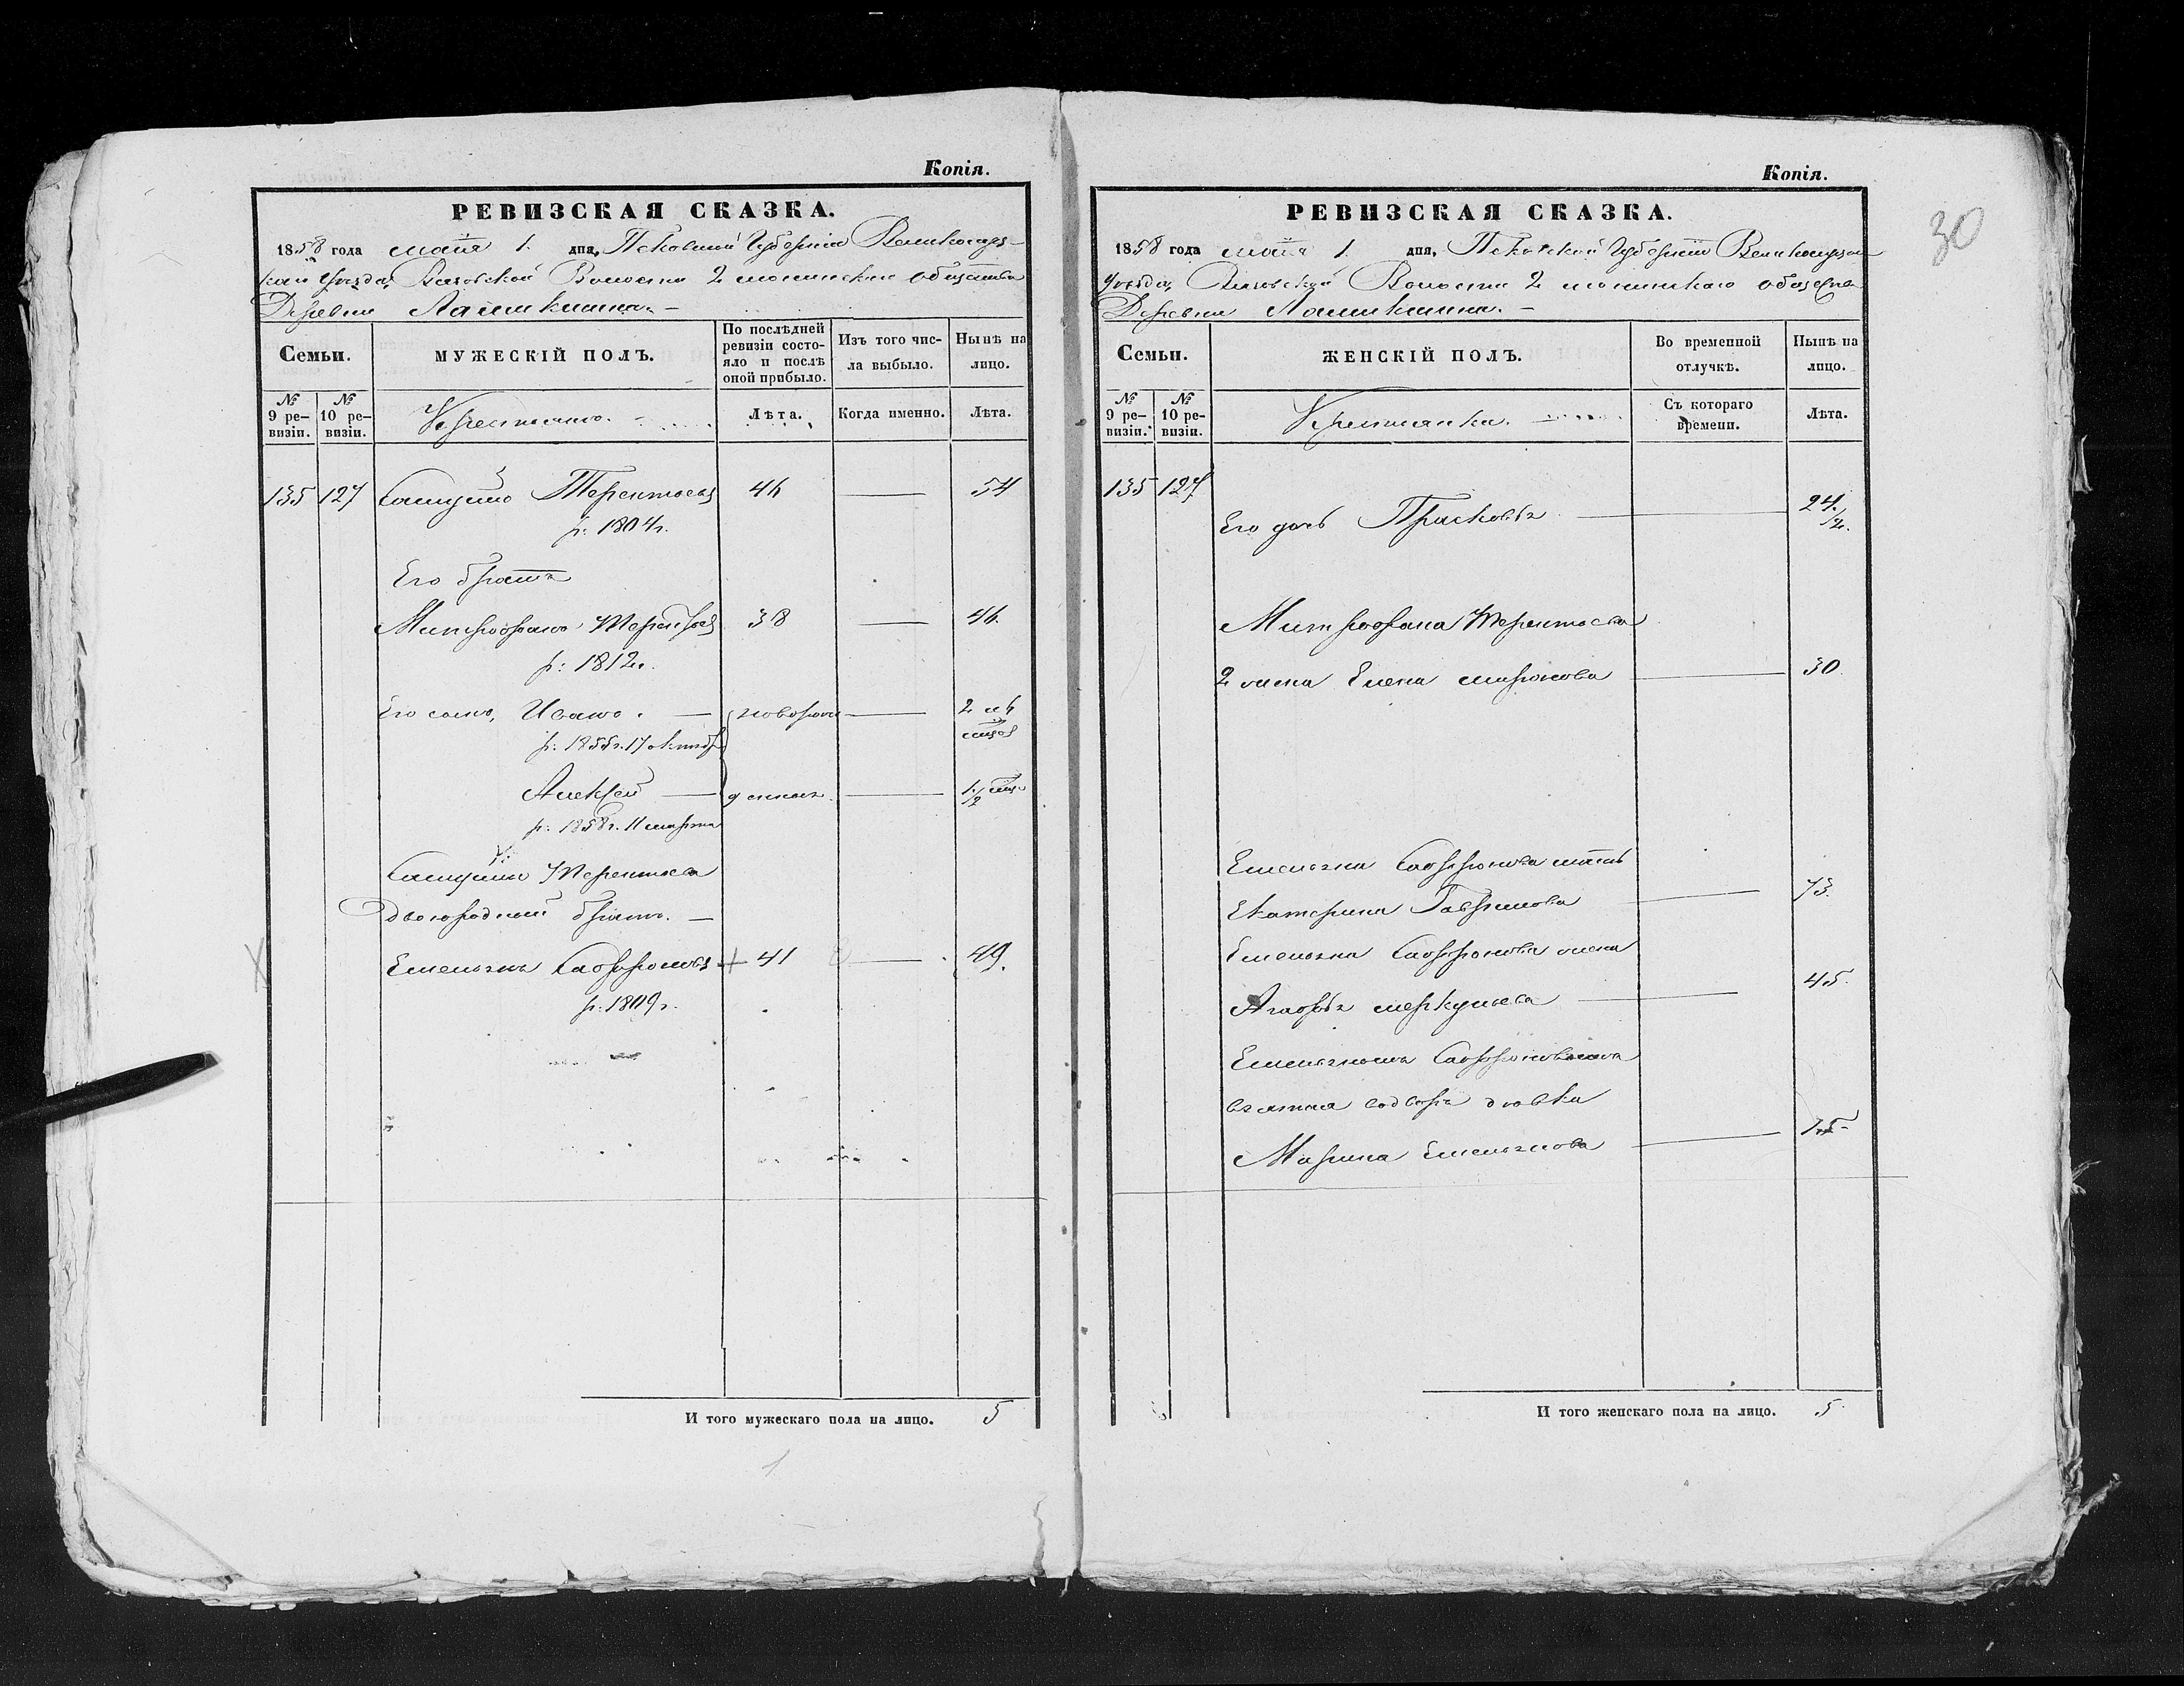 Копія.
РЕВИЗСКАЯ СКАЗКА.
1858 года мая 1. дня, Псковской Губерніи Великолуц-
каго уѣзда, Волости 2 общества
Деревни
Семьи.
МУЖЕСКІЙ ПОЛЪ.
По послѣдней ревизіи состояло и послѣ оной прибыло.
Изъ того числа выбыло.
Нынѣ на лицо.
№ 9 ревизіи.
№ 10 ревизіи.
Крестьянъ.
Лѣта.
Когда именно.
Лѣта.
135 127 Самуйло Терентьевъ 46 — 54
р: 1804 г.
Его братъ
Митрофанъ Терентьевъ 38 — 46.
р: 1812 г.
Его сынъ, Иванъ. — новорож — 2 6
р: 1855 г. 17 октяб
Алексей — денныхъ. — 1 1/2 мѣс
р: 1858 г. 11 марта
Самуйлы Терентьева
двоюродный братъ. —
Емельянъ Сафроновъ + 41 — 49.
р: 1809 г.
И того мужескаго пола на лицо. 5
Копія.
30
РЕВИЗСКАЯ СКАЗКА.
1858 года мая 1. дня, Псковской Губерніи Великолуцкаго
Уѣзда, Волости 2 общества
Деревни
Семьи.
ЖЕНСКІЙ ПОЛЪ.
Во временной отлучкѣ.
Нынѣ на лицо.
№ 9 ревизіи.
№ 10 ревизіи.
Крестьянка.
Съ котораго времени.
Лѣта.
135 127
Его дочь Прасковья — 24. 1/2.
Митрофана Терентьева
2 жена Елена миронова — 30.
Емельяна Сафронова мать
Екатерина Гаврилова — 73.
Емельяна Сафронова жена
Агафья меркульева — 45.
Емельяномъ Сафроновымъ
взятая девка
Марина Емельянова — 15
И того женскаго пола на лицо. 5.